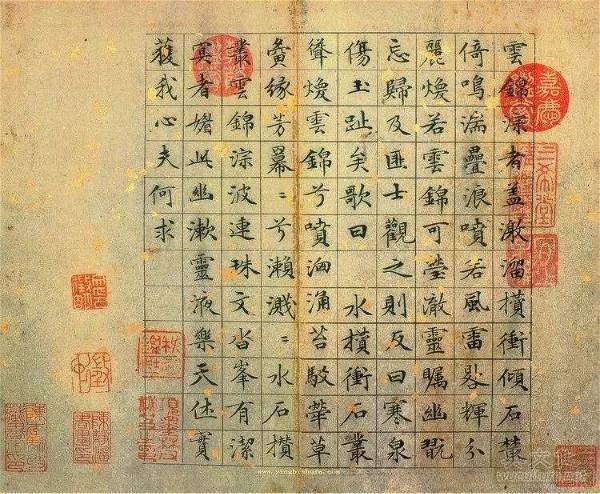 雲錦淙者盖激溜攢衝傾石叢
倚鳴湍疊浪噴若風雷詭輝分
麗煥若雲錦可瑩徹靈矚幽翫
忘歸及匪士觀之則反曰寒泉
傷玉趾矣歌曰 水攢衝石叢
聳煥雲錦兮噴洶涌苔駮犖草
夤緣芳冪〻兮瀨濺〻水石攢
叢雲錦淙波連珠文沓峯有潔
冥者媚此幽漱靈液樂天休實
獲我心夫何求